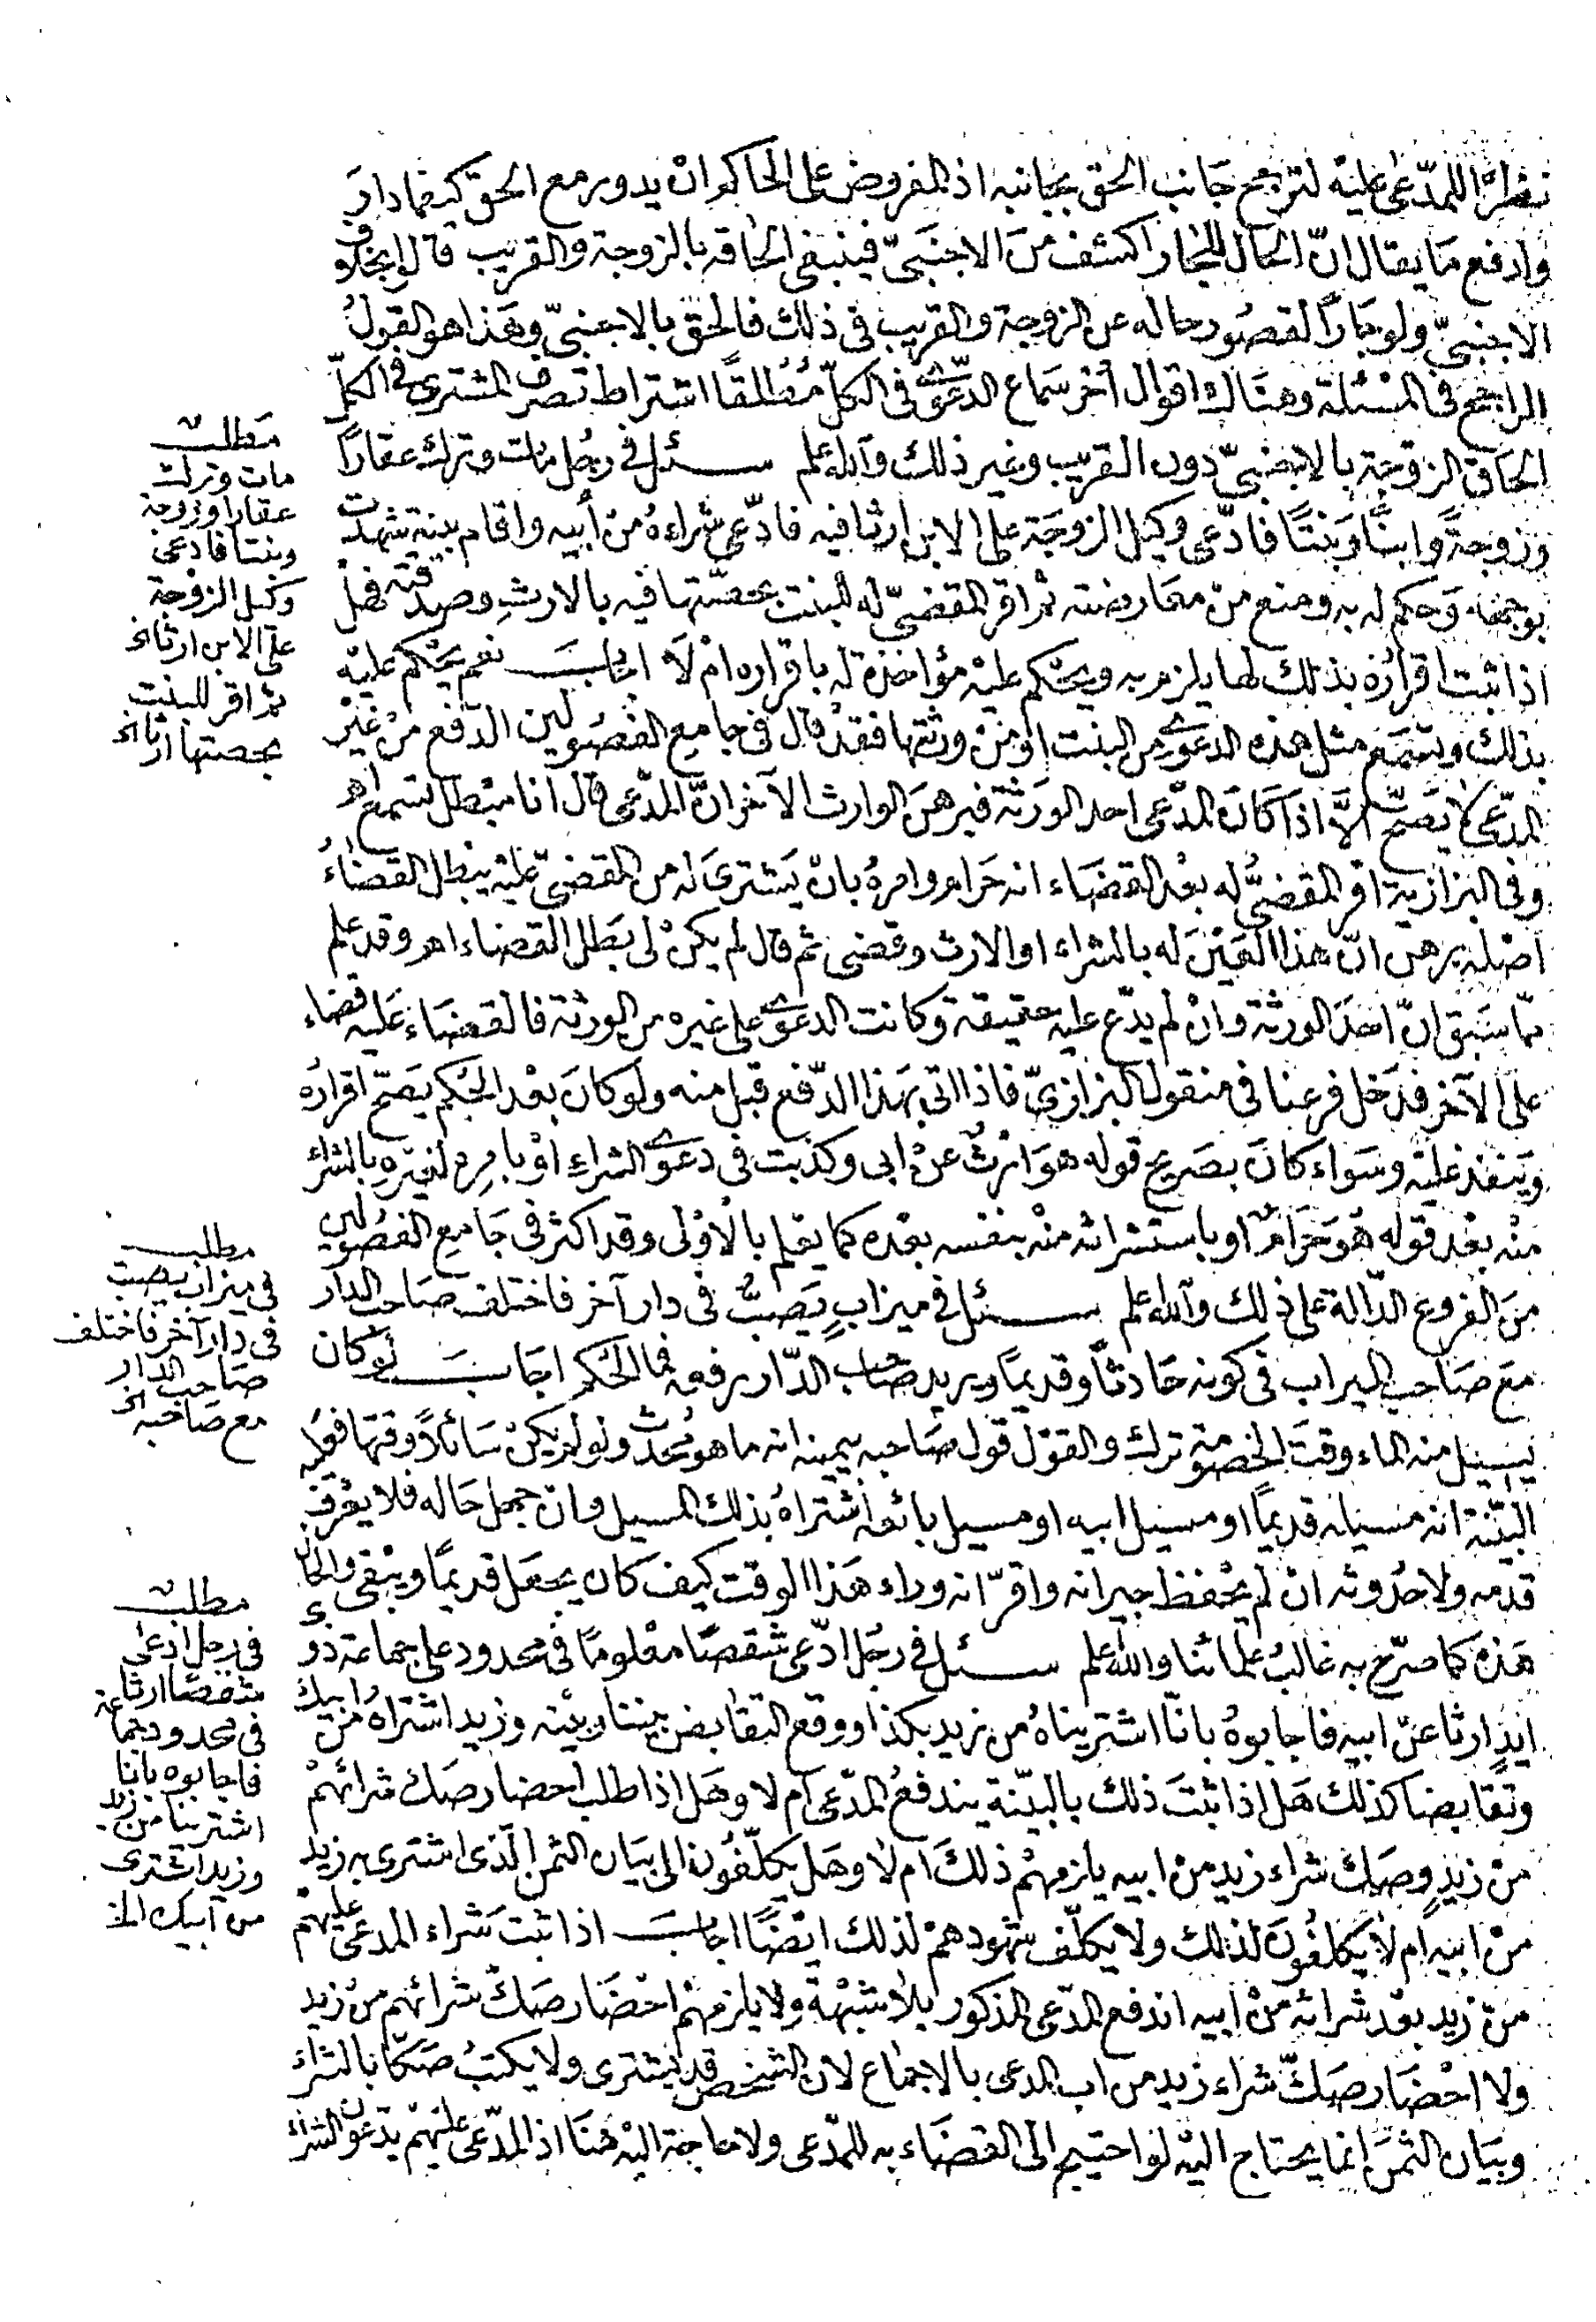 نظرًا للمدّعى عليه لترجح جانب الحق بجانبه اذ المفروض على الحاكم ان يدور مع الحق كيفما دار
واندفع ما يقال انّ الحال للجار اكشف من الاجنبيّ فينبغى الحاقه بالزوجة والقريب قال بخلاف
الاجنبيّ ولو جارًا لقصور حاله عن الزوجة والقريب فى ذلك فالحق بالاجنبيّ وهذا هو القول
الراجح فى المسئلة وهناك اقوال أخر سماع الدّعوى فى الكلّ مُطلقًا اشتراط تصرّف المشترى فى الكلّ
الحاق الزوجة بالاجنبيّ دون القريب وغير ذلك والله اعلم سئل فى رجل مات وترك عقارًا
وزوجةً وابنًا وبنتًا فادّعى وكيل الزوجة على الابن ارثا فيه فادّعى شراءه من أبيه واقام بينة شهدت
بوجهه وحكم له به ومنع من معارضته ثم اقر المقضيّ له للبنت بحصّتها فيه بالارث وصدقته فهل
اذا ثبت اقراره بذلك لها يلزم به ويحكم عليه مؤاخذة له باقراره ام لا اجاب نعم يحكم عليه
بذلك وتسمع مثل هذه الدعوى من البنت او من ورثتها فقد قال فى جامع الفصولين الدّفع من غير
المدّعى لا يصحّ الّا اذا كان المدّعى احد الورثة فبرهن الوارث الآخر انّ المدّعى قال انا مبطل تسمع اهـ
وفى البزازية اقر المقضيّ له بعد القضاء انه حرام وامره بان يشترى له من المقضيّ عليه يبطل القضاء
اصله برهن انّ هذا العين له بالشراء او الارث وقضى ثم قال لم يكن لى بطل القضاء اهـ وقد علم
ممّا سبق انّ احد الورثة وان لم يدّع عليه حقيقة وكانت الدعوى على غيره من الورثة فالقضاء عليه قضاء
على الآخر فدخل فرعنا فى منقول البزازيّ فاذا اتى بهذا الدّفع قبل منه ولو كان بعد الحكم يصحّ اقراره
وينفذ عليه وسواء كان بصريح قوله هو ارثٌ عن ابى وكذبت فى دعوى الشراء او بامرِهِ لغيره بالشراء
منه بعد قوله هو حرام او باستشرائه منه بنفسه بعده كما يعلم بالاولى وقد اكثر فى جامع الفصولين
من الفروع الدّالة على ذلك والله اعلم سئل فى ميزابٍ يصبّ فى دار آخر فاختلف صاحب الدار
مع صاحب الميزاب فى كونه حادثًا وقديمًا ويريد صاحب الدّار رفعه فما الحكم اجاب لو كان
يسيل منه الماء وقت الخصومة ترك والقول قول صاحبه بيمينه انه ما هو مُحدث ولو لم يكن سائلًا وقتها فعليه
البيّنة انه مسيله قديمًا او مسيل ابيه او مسيل بائعه اشتراه بذلك المسيل وان جهل حاله فلا يعرف
قدمه ولا حدوثه ان لم يحفظ جيرانه واقرّانه وراء هذا الوقت كيف كان يجعل قديمًا ويبقى والحال
هذه كما صرّح به غالب علمائنا والله اعلم سئل فى رجل ادّعى شقصًا معلومًا فى محدود على جماعة ذوى
ايدٍ ارثا عن ابيه فاجابوه بانّا اشتريناه من زيد بكذا ووقع التقابض بيننا وبينه وزيد اشتراه من ابيك
وتقابضا كذلك هل اذا ثبت ذلك بالبيّنة يندفع المدّعى ام لا وهل اذا طلب احضار صك شرائهم
من زيد وصك شراء زيد من ابيه يلزمهم ذلك ام لا وهل يكلّفون الى بيان الثمن الّذى اشترى به زيد
من ابيه ام لا يكلفون لذلك ولا يكلّف شهودهم لذلك ايضًا اجاب اذا ثبت شراء المدعى عليهم
من زيد بعد شرائه من ابيه اندفع المدّعى المذكور بلا شبهة ولا يلزمهم احضار صكّ شرائهم من زيد
ولا احضار صكّ شراء زيد من اب المدعى بالاجماع لان الشخص قد يشترى ولا يكتب صكًا بالشراء
وبيان الثمن انما يحتاج اليه لو احتيج الى القضاء به للمدّعى ولا حاجة اليه هنا اذ المدّعى عليهم يدّعون الشراء
مطلب
مات وترك
عقارا وزوجة
وبنتا فادعى
وكيل الزوجة
على الابن ارثا الخ
ثم اقر للبنت
بحصتها ارثا الخ
مطلب
فى ميزاب يصب
فى دار آخر فاختلف
صاحب الدار
مع صاحبه الخ
مطلب
فى رجل ادعى
شقصا ارثا
فى محدود جماعة
فاجابوه باننا
اشترينا من زيد
وزيد اشترى
من ابيك الخ